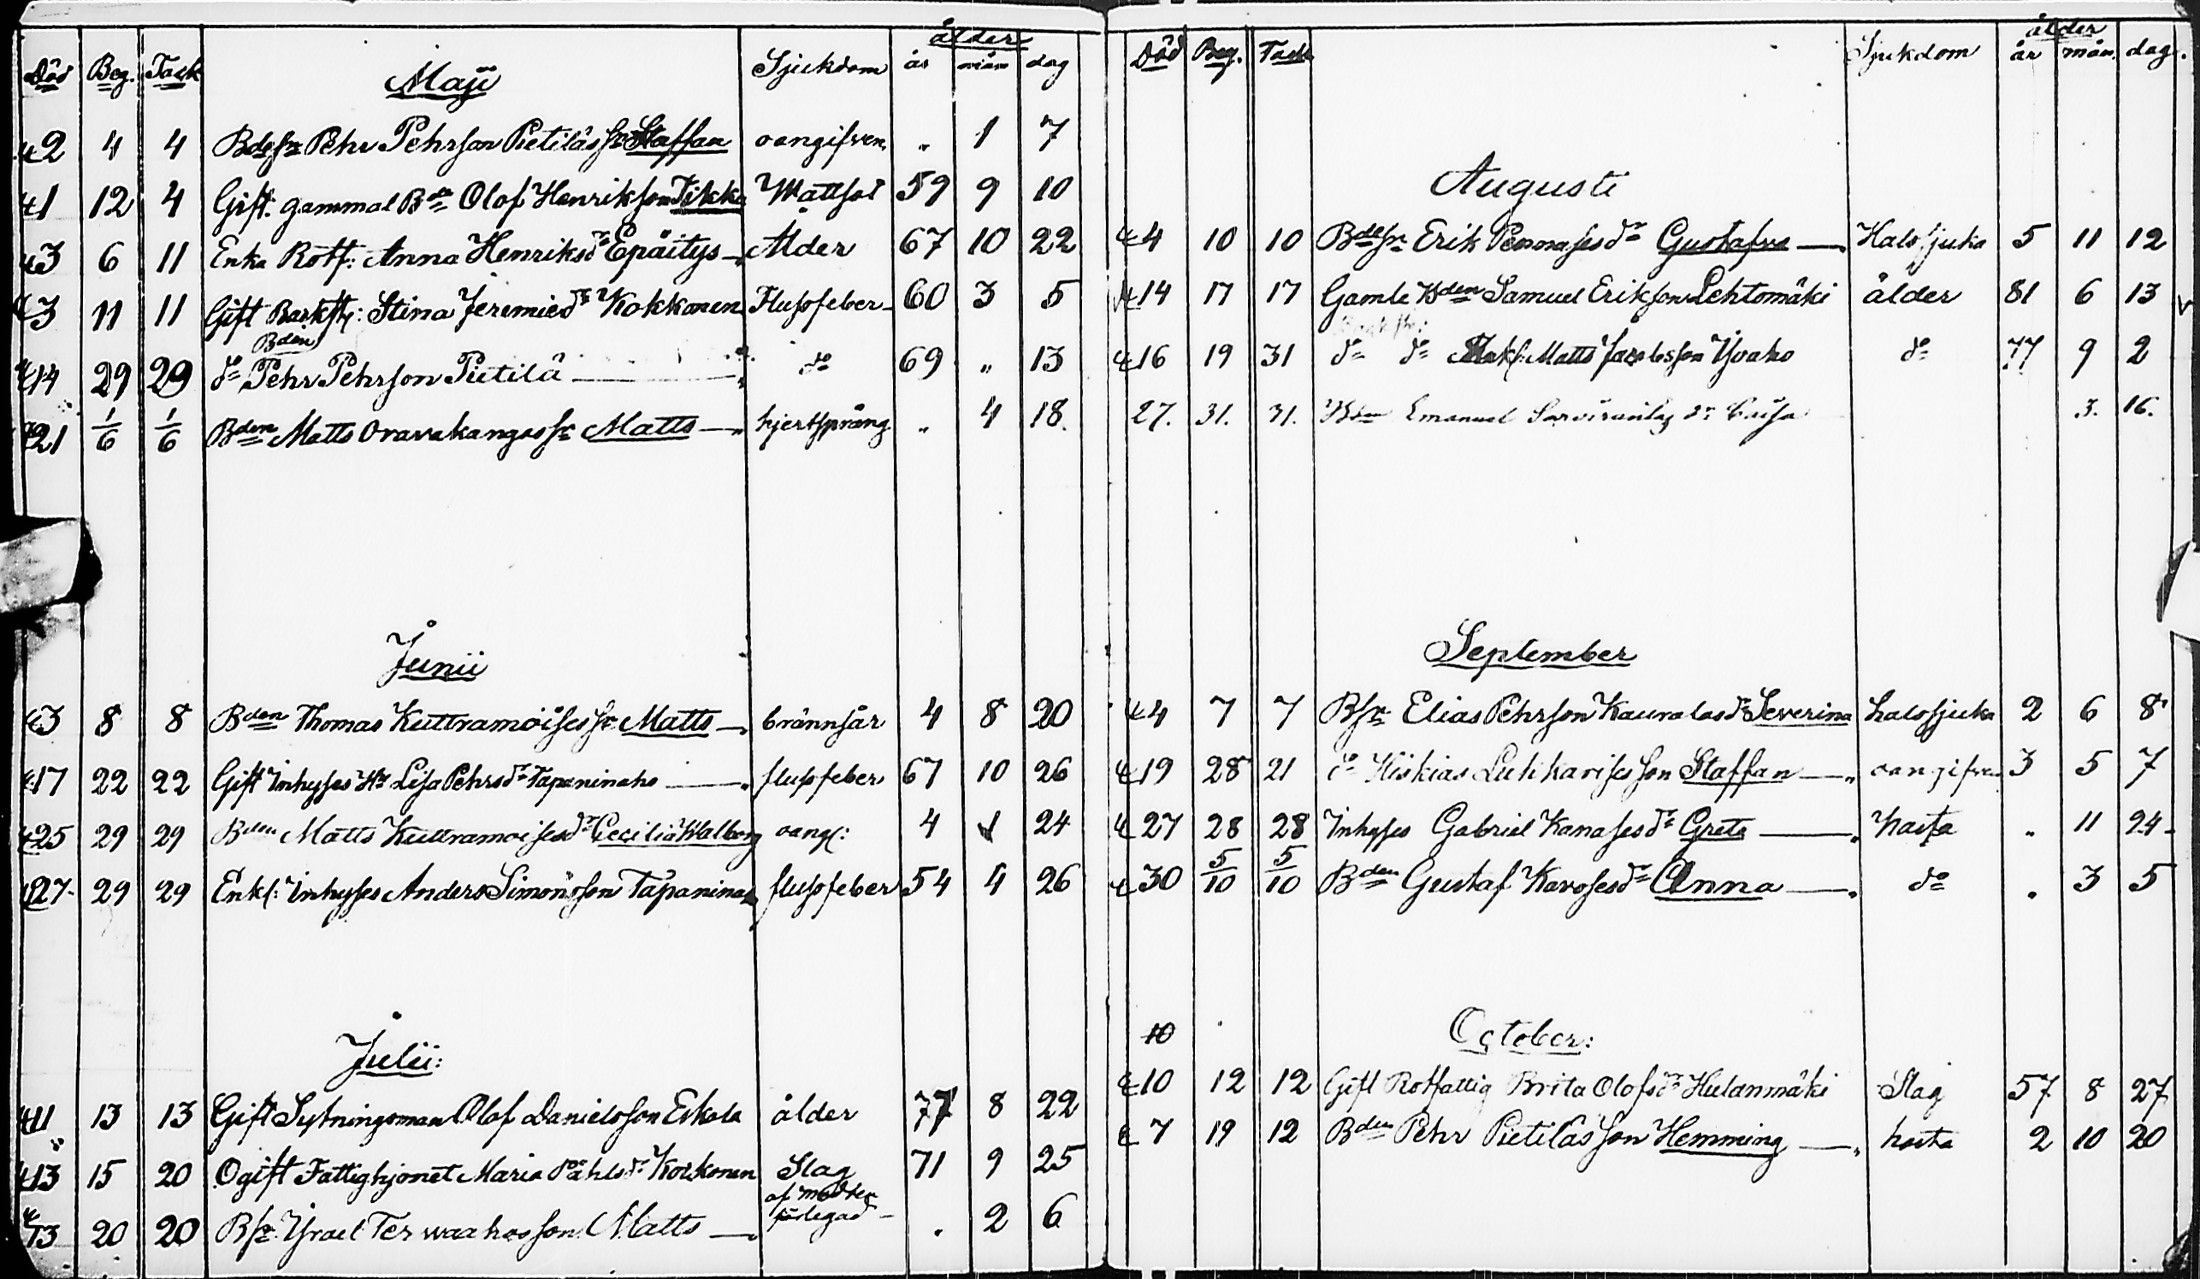 Död Beg. Tack Maji Sjukdom ålder år mån dag
2 4 4 Bdesn Pehr Pehrson Pietiläs sn Staffan oangifven . 1 7
1 12 4 Gift. gammal Bdn Olof Henrikson Tikka Wattsot 59 9 10
3 6 11 Enka Rotf: Anna Henriksdr Epäitys Ålder 67 10 22
3 11 11 Gift Backst: Stina Jeremiedr Kokkonen Flussfeber 60 3 5
14 29 29 do Bden Pehr Pehrson Pietilä do 69 " 13
21 1/6 1/6 Bden Matts Oravakangas sn Matts hjertsprång . 4 18.
Junii
3 8 8 Bden Thomas Kuttramoises sn Matts brännsår 4 8 20
17 22 22 Gift Inhyses Hu Lisa Pehrsdr Tapaninaho flussfeber 67 10 26
25 29 29 Bden Matts Kuttramoises dr Cecilia Walborg oangf: 4 1 24
27 29 29 Enkl: Inhyses Anders Simonsson Tapaninaho flussfeber 54 4 26
Julii:
11 13 13 Gift Sytningsman Olof Danielsson Eskola ålder 77 8 22
13 15 20 Ogift Fattighjonet Maria Påhlsdr Koikonen Slag 71 9 25
13 20 20 Bsn Israel Terwaahos son Matts af modren ihjelegad . 2 6
Död Beg. Tack Sjukdom ålder år mån. dag.
Augusti
4 10 10 Bdesn Erik Pennases dr Gustafva Halssjuka 5 11 12
14 17 17 Gamle Bden Samuel Erikson Lehtomäki ålder 81 6 13
16 19 31 do do Matts Jacobsson Ysaho do 77 9 2
27. 31. 31. Bden Emanuel Sarviranta dr Caisa 3. 16.
September
4 7 7 Bsn Elias Pehrson Kauralas dr Severina halssjuka 2 6 8
19 28 21 do Hiskias Luhkarises son Staffan oangifven 3 5 7
27 28 28 Inhyses Gabriel Kanases dr Greta hosta . 11 24
30 5/10 5/10 Bden Gustaf Karoses dr Anna do . 3 5
10 October:
10 12 12 Gift Rotfattig Brita Olofsdr Hulanmäki Slag 57 8 27
7 19 12 Bden Pehr Pietiläs son Hemming hosta 2 10 20